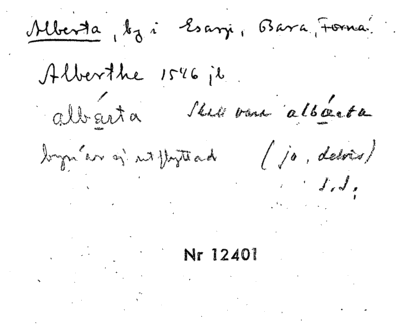 Alberta, by i Esarp, Bara, Torna
Alberthe 1546 jb
albárta Skall vara albárta
byn är ej utflyttad (jo, delvis)
I.I.
Nr 12401